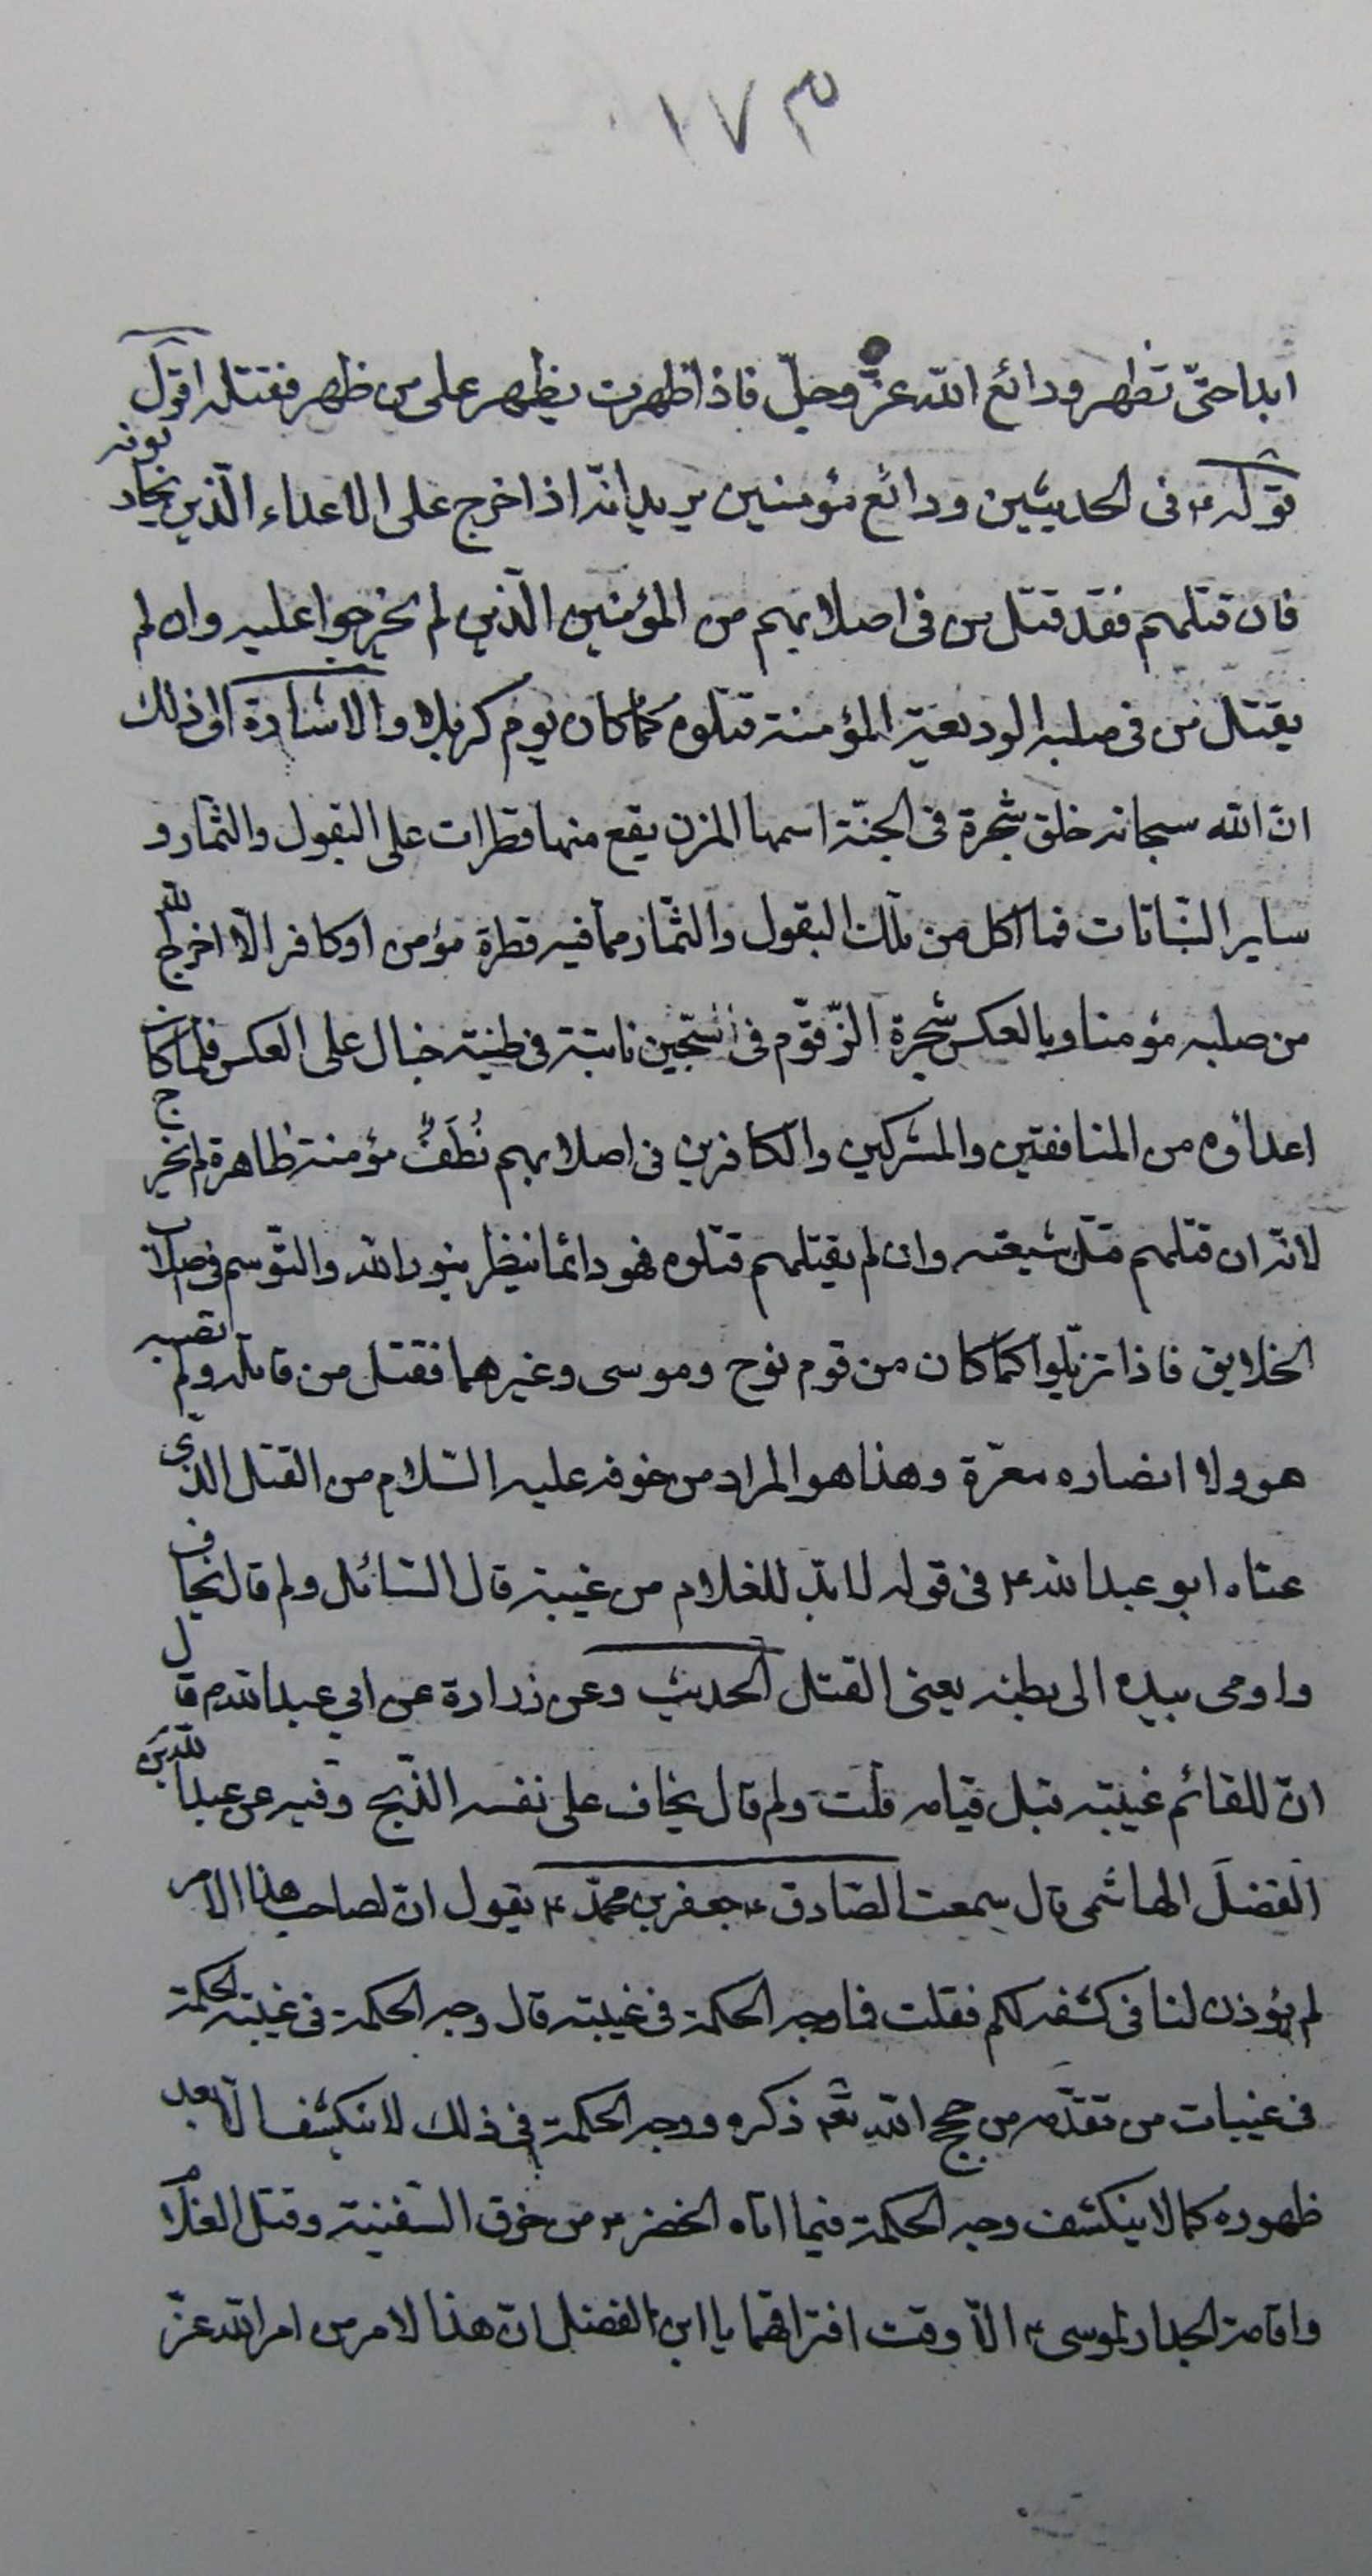 ١٧٣
ابدا حتّى تظهر ودائع الله عزّ وجلّ فاذا ظهرت يظهر على من ظهر فقتله اقول
قوله ع فى الحديثين ودائع مؤمنين يريد انّه اذا خرج على الاعداء الّذين يحادونه
فان قتلهم فقد قتل من فى اصلابهم من المؤمنين الّذين لم يخرجوا عليه وان لم
يقتل من فى صلبه الوديعة المؤمنة قتلوه كما كان يوم كربلا والاشارة الى ذلك
انّ الله سبحانه خلق شجرة فى الجنّة اسمها المزن يقع منها قطرات على البقول والثّمار و
ساير النّباتات فما اكل من تلك البقول والثّمار ممّا فيه قطرة مؤمن او كافر الّا اخرج الله
من صلبه مؤمنا وبالعكس شجرة الزّقّوم فى سّجين نابتة فى طينة خبال على العكس فلما كان
اعداؤه من المنافقين والمشركين والكافرين فى اصلابهم نُطَفٌ مؤمنة طاهرة لم يخرج
لانّه ان قتلهم قتل شيعته وان لم يقتلهم قتلوه فهو دائما ينظر بنور الله والتّوسم فى اصلاب
الخلايق فاذا تزيّلوا كما كان من قوم نوح وموسى وغيرهما فقتل من قاتله ولم تصبه
هو ولا انصاره معرّة وهذا هو المراد من خوفه عليه السّلام من القتل الذى
عناه ابو عبد الله ع فى قوله لا بدّ للغلام من غيبة قال السّائل ولم قال يخاف
واومى بيده الى بطنه يعنى القتل الحديث وعن زرارة عن ابي عبد الله م قال
انّ للقائم غيبة قبل قيامه قلت ولم قال يخاف على نفسه الذّبح وفيه عن عبد الله بن
الفضل الهاشمى قال سمعت الصّادق ع جعفر بن محمّد ع يقول انّ لصاحب هذا الامر
لم يؤذن لنا فى كشفه لكم فقلت فما وجه الحكمة فى غيبته قال وجه الحكمة فى غيبته الحكمة
فى غيبات من تقدّمه من حجج الله تع ذكره ووجه الحكمة فى ذلك لا ينكشف الّا بعد
ظهوره كما لا ينكشف وجه الحكمة فيما اتاه الخضر ع من خرق السّفينة وقتل الغلام
واقامة الجدار لموسى ع الّا وقت افتراقهما يا ابن الفضل انّ هذا الامر من امر الله عزّ